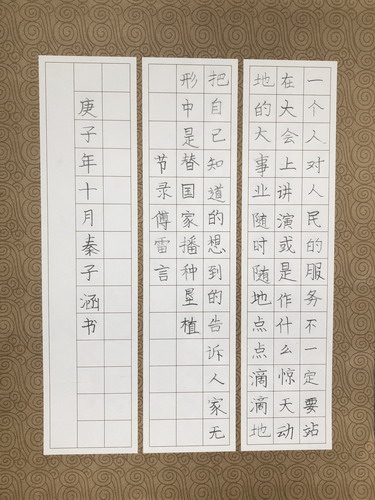 一个人对人民的服务不一定要站
在大会上讲演或是作什么惊天动
地的大事业随时随地点点滴滴地
把自己知道的想到的告诉人家无
形中是替国家播种垦植
节录傅雷言
庚子年十月秦子涵书